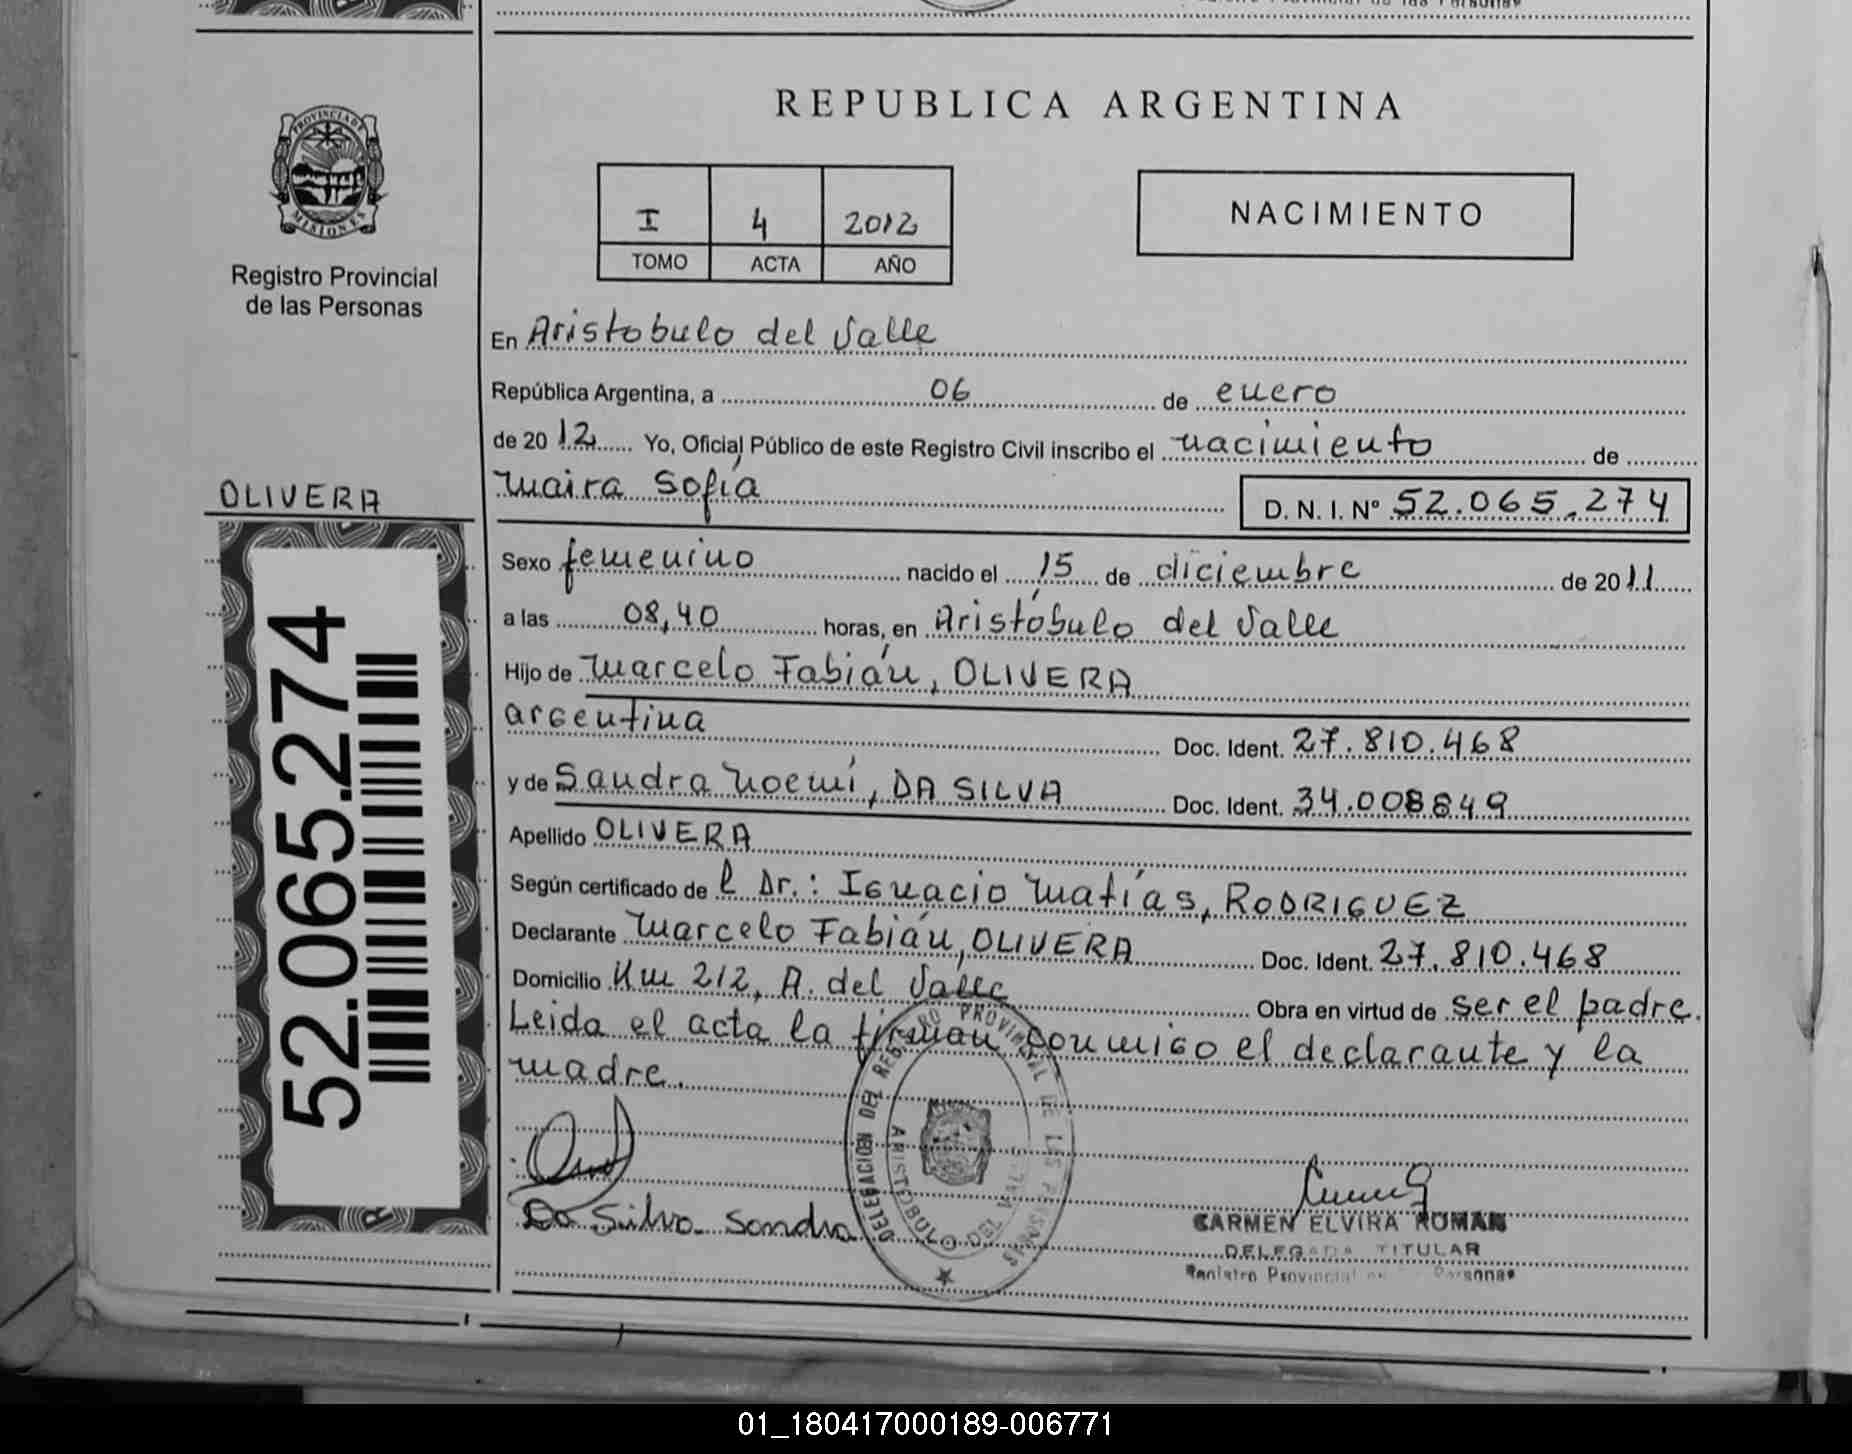 REPUBLICA ARGENTINA
PROVINCIA DE
MISIONES
Registro Provincial
de las Personas
I 4 2012
TOMO ACTA AÑO
NACIMIENTO
En Aristobulo del Valle
República Argentina, a 06 de enero
de 2012 Yo, Oficial Público de este Registro Civil inscribo el nacimiento de
Maira Sofía D. N. I. Nº 52.065.274
OLIVERA
52.065.274
Sexo femenino nacido el 15 de diciembre de 2011
a las 08,40 horas, en Aristóbulo del Valle
Hijo de Marcelo Fabián, OLIVERA
argentina Doc. Ident. 27.810.468
y de Sandra Noemí, DA SILVA Doc. Ident. 34.008849
Apellido OLIVERA
Según certificado de l Dr.: Ignacio Matías, RODRIGUEZ
Declarante Marcelo Fabián, OLIVERA Doc. Ident. 27.810.468
Domicilio Km 212, A. del Valle Obra en virtud de ser el padre.
Leida el acta la firman conmigo el declarante y la
madre.
DELEGACION DEL REGISTRO PROVINCIAL DE LAS PERSONAS
ARISTOBULO DEL VALLE
Da Silva Sandra
CARMEN ELVIRA ROMAN
DELEGADA TITULAR
Registro Provincial de las Personas
01_180417000189-006771